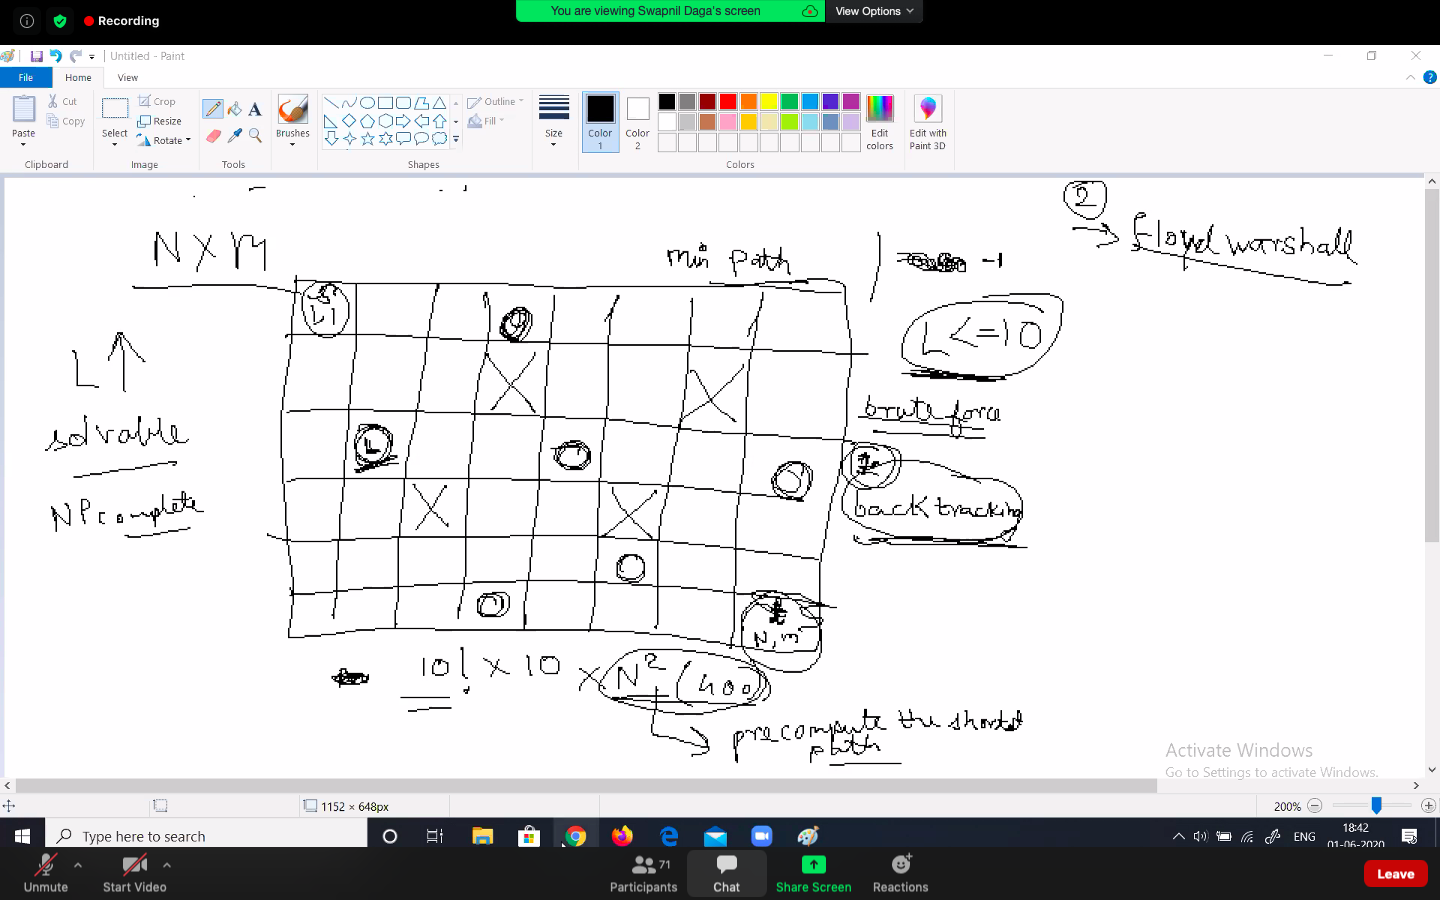 Recording
You are viewing Swapnil Daga's screen
View Options
Untitled - Paint
File
Home
View
Paste
Cut
Copy
Clipboard
Select
Crop
Resize
Rotate
Image
A
Tools
Brushes
Outline
Fill
Shapes
Size
Color 1
Color 2
Colors
Edit colors
Edit with Paint 3D
2
Floyd warshall
N X M
min path
-1
L <=10
L
solvable
NP complete
brute force
L
back tracking
t
N, m
10! x 10 x N² (400)
precompute the shortest
path
Activate Windows
Go to Settings to activate Windows.
1152 × 648px
200%
Type here to search
ENG
18:42
01-06-2020
Unmute
Start Video
71
Participants
Chat
Share Screen
Reactions
Leave